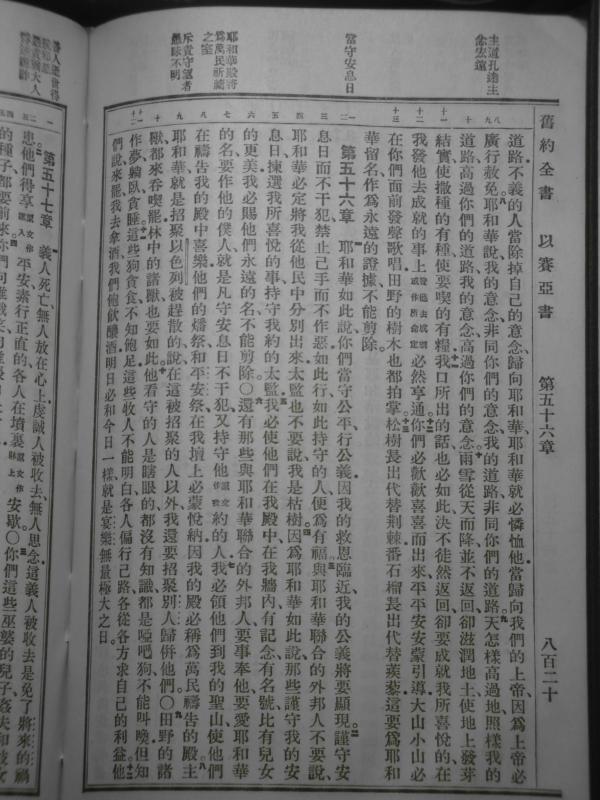 舊約全書 以賽亞書 第五十六章 八百二十
主道孔遠主
念宏遠
當守安息日
耶和華殿將
為萬民祈禱
之室
斥責守望者
愚昧不明
道路不義的人當除掉自己的意念歸向耶和華耶和華就必憐恤他當歸向我們的上帝因為上帝必
廣行赦免耶和華說我的意念非同你們的意念我的道路非同你們的道路天怎樣高過地照樣我的
道路高過你們的道路我的意念高過你們的意念雨雪從天而降並不返回卻滋潤地土使地上發芽
結實使撒種的有種使要喫的有糧我口所出的話也必如此決不徒然返回卻要成就我所喜悅的在
我發他去成就的事上必然亨通你們必歡歡喜喜而出來平平安安蒙引導大山小山必
在你們面前發聲歌唱田野的樹木也都拍掌松樹長出代替荊棘番石榴長出代替蒺藜這要為耶和
華留名作為永遠的證據不能剪除
第五十六章 耶和華如此說你們當守公平行公義因我的救恩臨近我的公義將要顯現謹守安
息日而不干犯禁止己手而不作惡如此行如此持守的人便為有福與耶和華聯合的外邦人不要說
耶和華必定將我從他民中分別出來太監也不要說我是枯樹因為耶和華如此說那些謹守我的安
息日揀選我所喜悅的事持守我約的太監我必使他們在我殿中在我牆內有記念有名號比有兒女
的更美我必賜他們永遠的名不能剪除○還有那些與耶和華聯合的外邦人要事奉他要愛耶和華
的名要作他的僕人就是凡守安息日不干犯又持守他約的人我必領他們到我的聖山使他們
在禱告我的殿中喜樂他們的燔祭和平安祭在我壇上必蒙悅納因我的殿必稱為萬民禱告的殿主
耶和華就是招聚以色列被趕散的說在這被招聚的人以外我還要招聚別人歸併他們○田野的諸
獸都來吞喫罷林中的諸獸也要如此他看守的人是瞎眼的都沒有知識都是啞吧狗不能叫喚但知
作夢躺臥貪睡這些狗貪食不知飽足這些收人不能明白各人偏行己路各從各方求自己的利益他
們說來罷我去拿酒我們飽飲釀酒明日必和今日一樣就是宴樂無量極大之日
第五十七章 義人死亡無人放在心上虔誠人被收去無人思念這義人被收去是免了將來的禍
患他們得享平安素行正直的各人在墳裏安歇○你們這些巫婆的兒子姦夫和妓女
的種子都要前來你們向誰戲笑